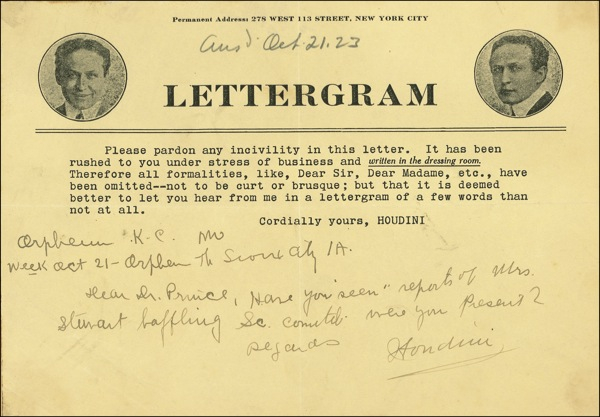 Permanent Address: 278 WEST 113 STREET, NEW YORK CITY
Ansd. Oct. 21. 23
LETTERGRAM
Please pardon any incivility in this letter. It has been
rushed to you under stress of business and written in the dressing room.
Therefore all formalities, like, Dear Sir, Dear Madame, etc., have
been omitted--not to be curt or brusque; but that it is deemed
better to let you hear from me in a lettergram of a few words than
not at all.
Cordially yours, HOUDINI
Orpheum K.C. Mo
Week Oct 21 - Orpheum Th Sioux City IA.
Dear Dr. Prince, Have you "seen" reports of Mrs.
Stewart baffling Sc. were you Present?
regards Houdini